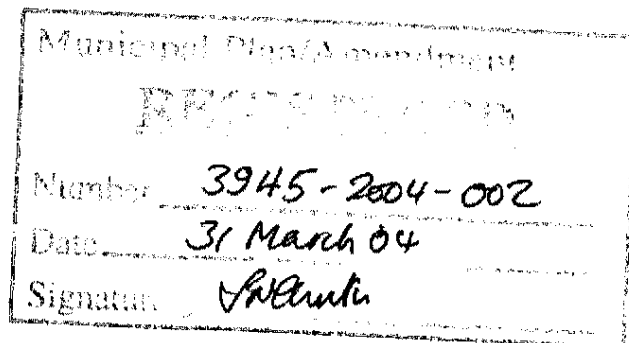 Municipal Plan/Amendment
REGISTERED
Number 3945-2004-002
Date 31 March 04
Signature